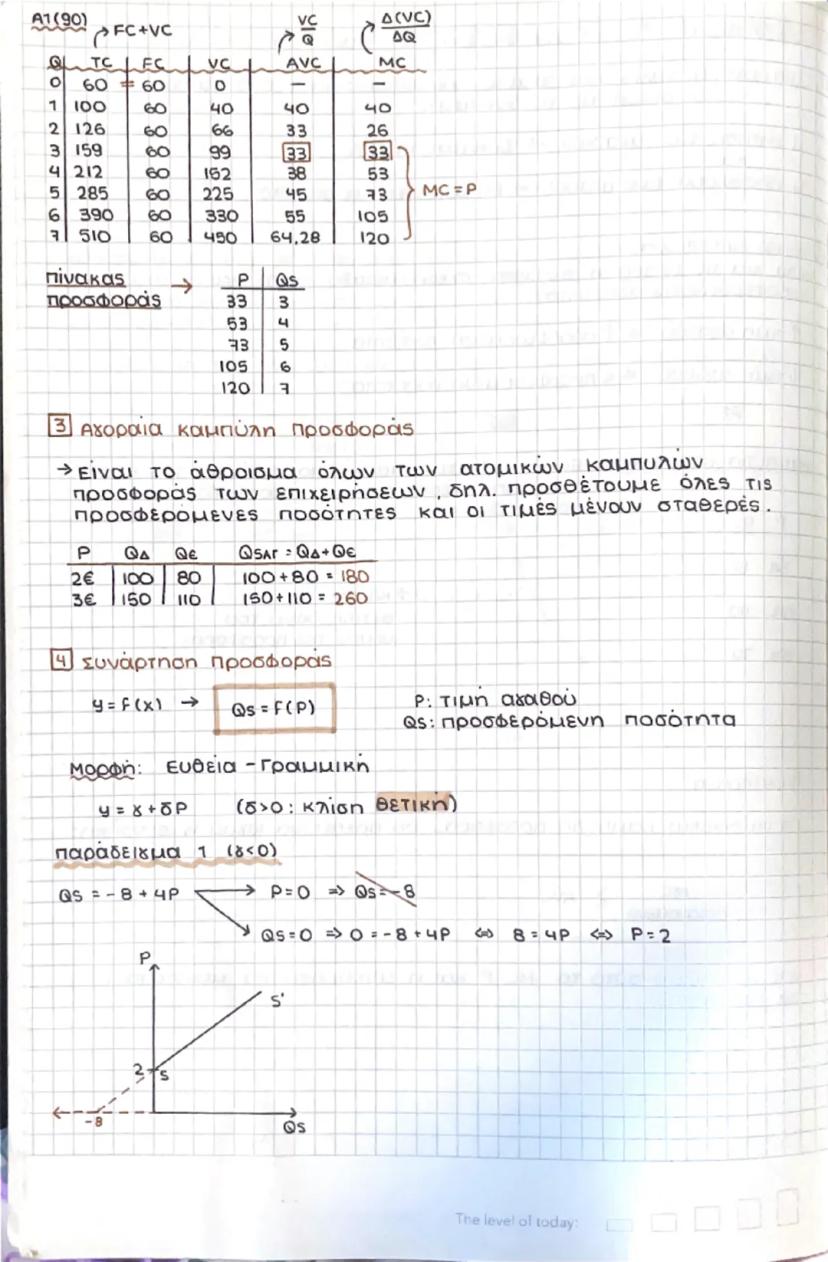 A1(90)
FC+VC
VC/Q
Δ(VC)/ΔQ
Q TC FC VC AVC MC
0 60 = 60 0 – –
1 100 60 40 40 40
2 126 60 66 33 26
3 159 60 99 33 33
4 212 60 152 38 53
5 285 60 225 45 73
6 390 60 330 55 105
7 510 60 450 64,28 120
MC = P
Πίνακας προσφοράς →
P Qs
33 3
53 4
73 5
105 6
120 7
3 Αγοραία καμπύλη προσφοράς
→ Είναι το άθροισμα όλων των ατομικών καμπυλών
προσφοράς των επιχειρήσεων, δηλ. προσθέτουμε όλες τις
προσφερόμενες ποσότητες και οι τιμές μένουν σταθερές.
P QΔ Qε QSAΓ = QΔ+Qε
2€ 100 80 100+80 = 180
3€ 150 110 150+110 = 260
4 Συνάρτηση προσφοράς
y = f(x) → Qs = f(P) P: τιμή αγαθού
Qs: προσφερόμενη ποσότητα
Μορφή: Ευθεία - Γραμμική
y = γ + δP (δ>0: κλίση θετική)
παράδειγμα 1 (γ<0)
Qs = -8 + 4P → P=0 ⇒ Qs=-8
Qs=0 ⇒ 0 = -8 + 4P ⇔ 8 = 4P ⇔ P=2
P
S'
2 S
-8
Qs
The level of today: